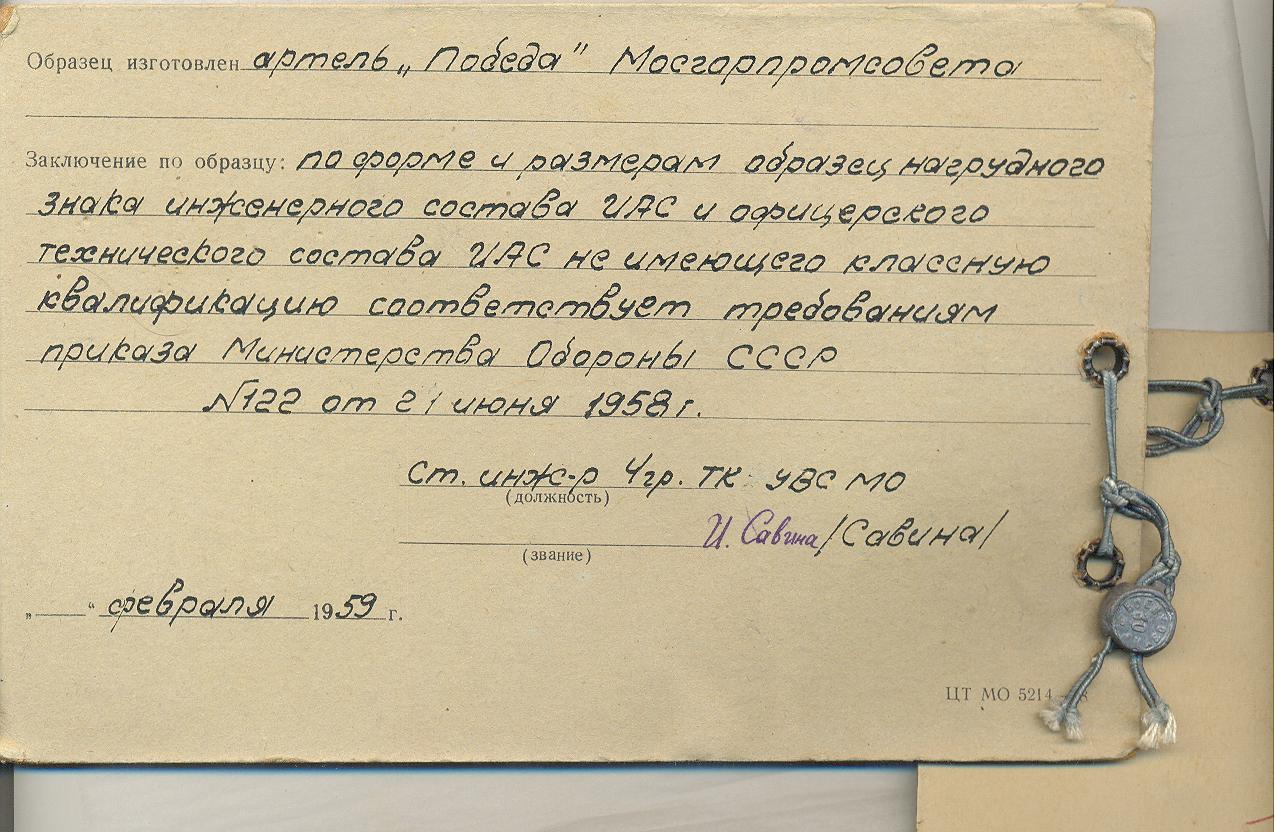 Образец изготовлен артель „Победа" Мосгорпромсовета
Заключение по образцу: по форме и размерам образец нагрудного
знака инженерного состава ИАС и офицерского
технического состава ИАС не имеющего классную
квалификацию соответствует требованиям
приказа Министерства Обороны СССР
№122 от 21 июня 1958 г.
Ст. инж-р 4гр. ТК УВС МО
(должность)
И. Савина /Савина/
(звание)
„ “ февраля 1959 г.
30
ЦТ МО 5214